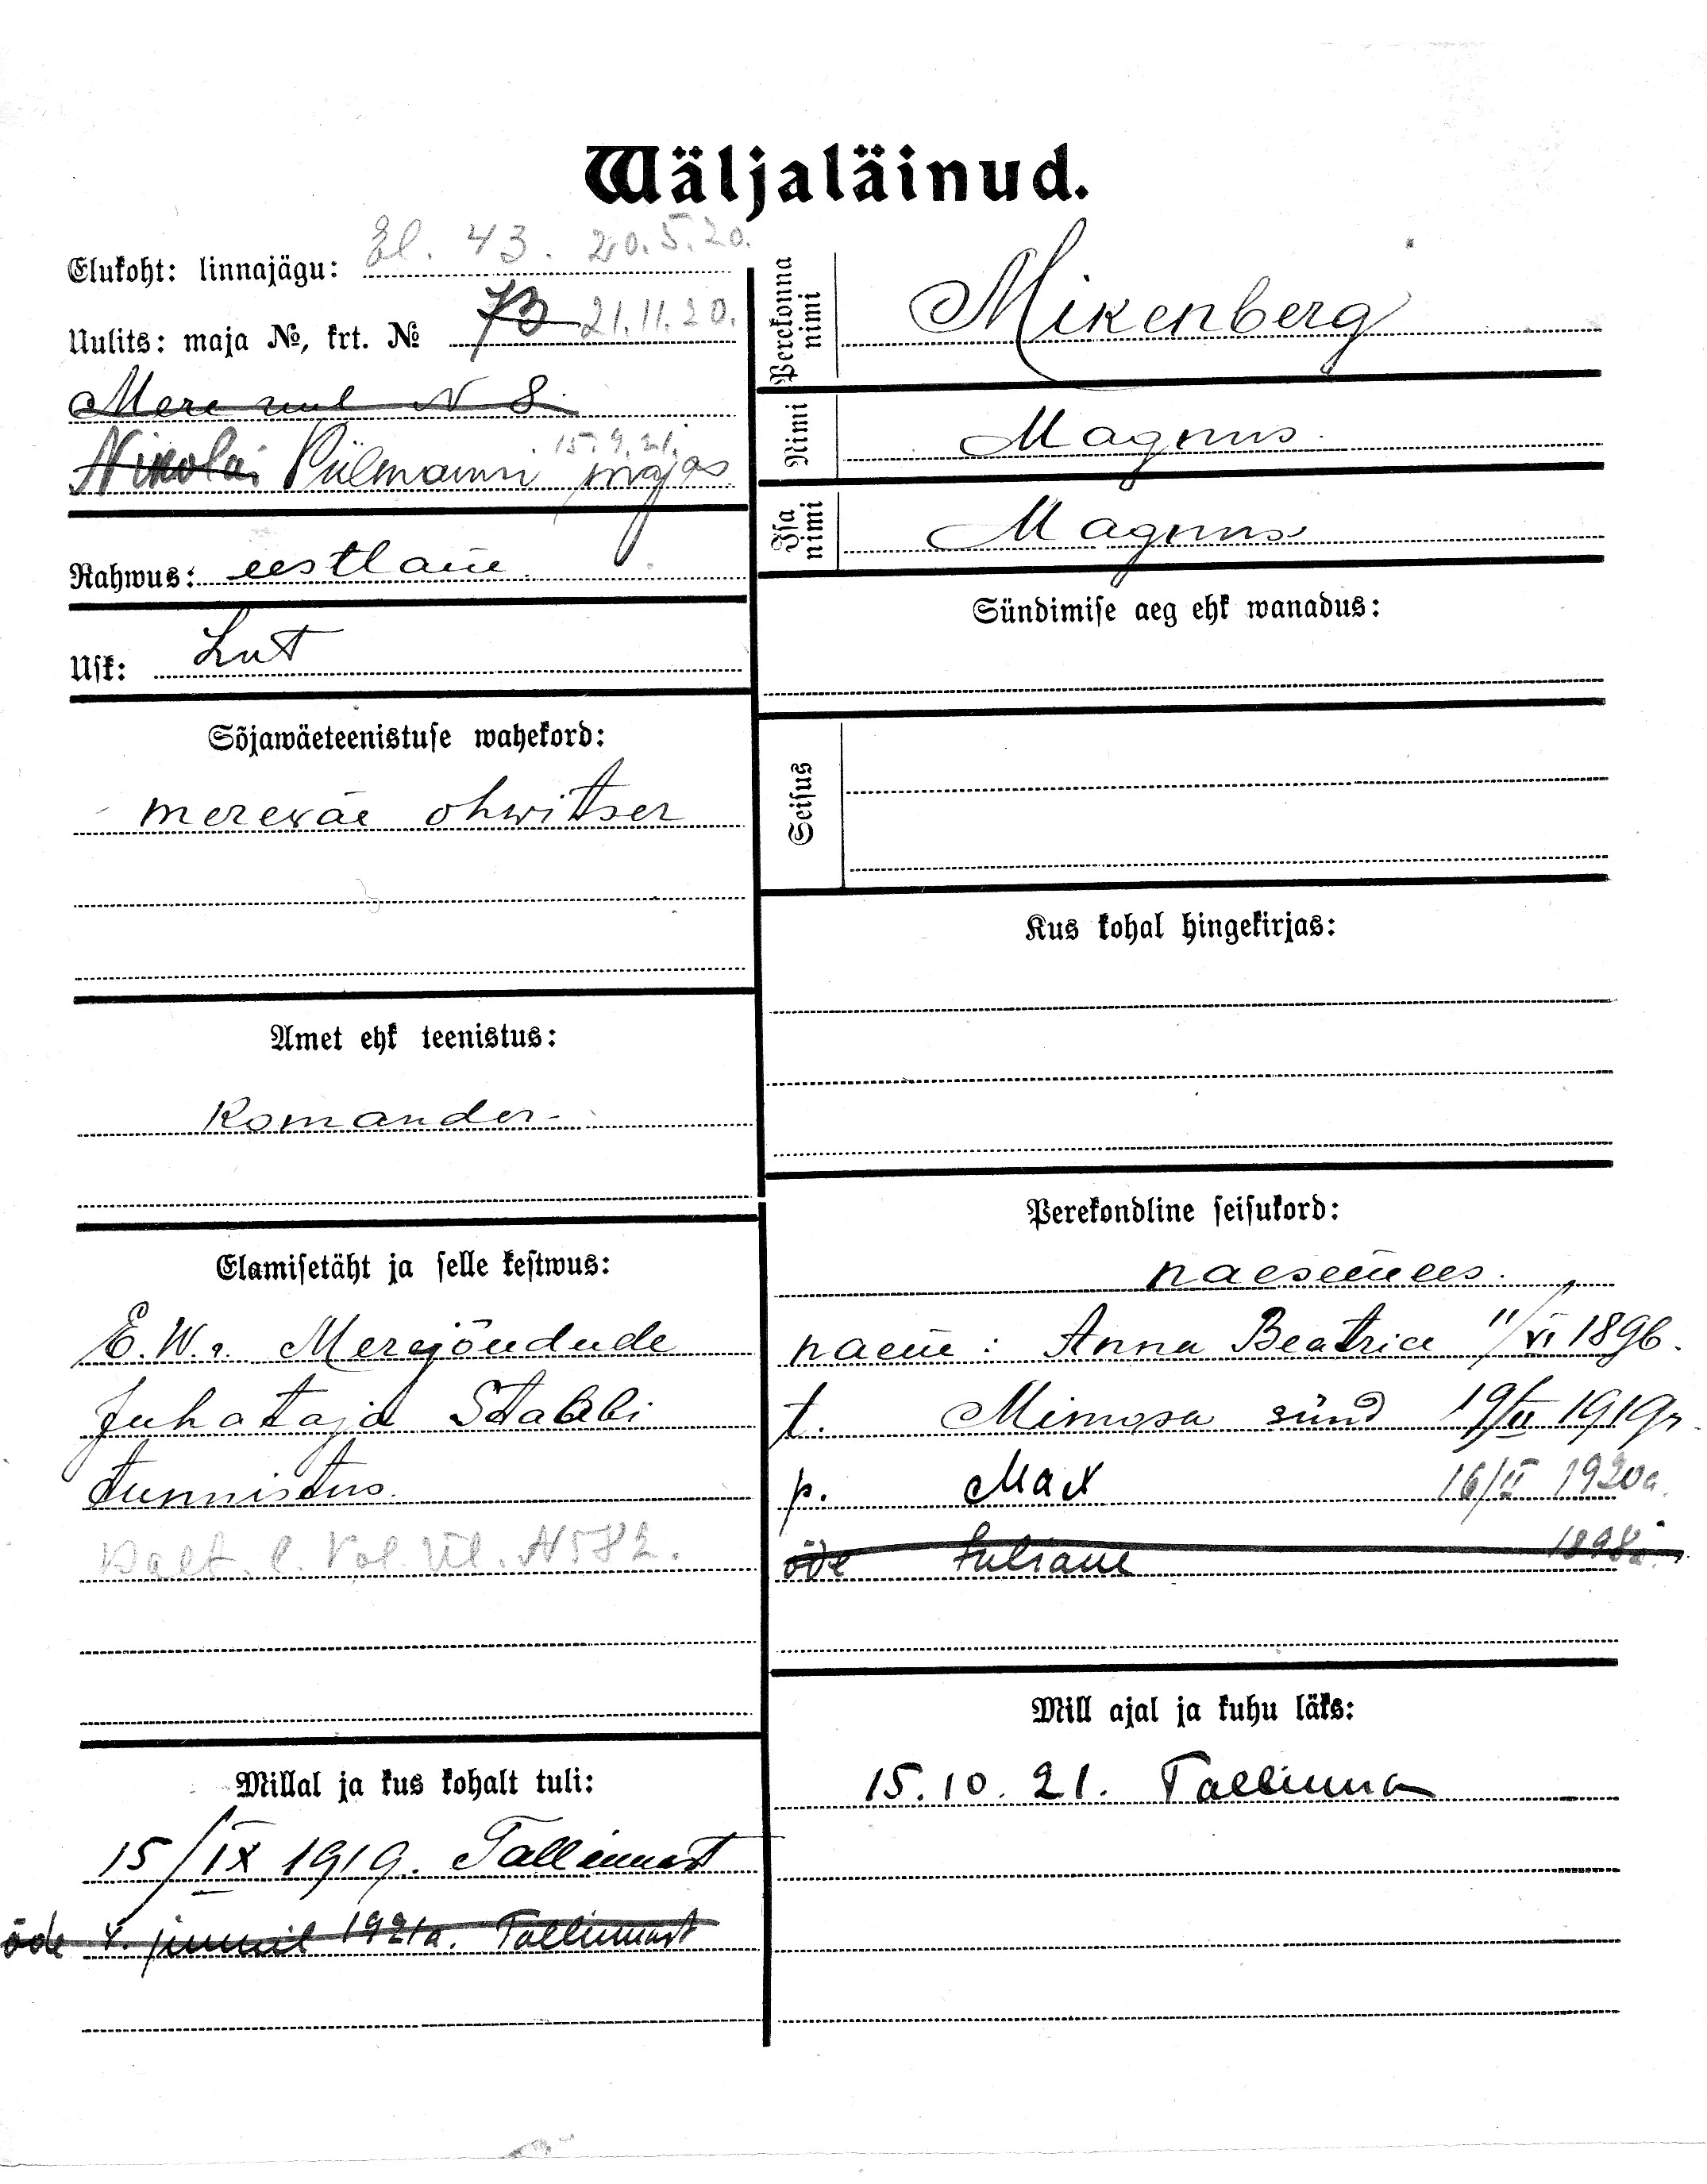 Wäljaläinud.
Elukoht: linnajägu: El. 43. 20.5.20.
Uulits: maja №, krt. № 73 21.11.20.
Mere uul N 8.
15.9.21.
Nikolai Püilmanni majas
Rahwus: eestlane
Usk: Lut
Sõjawäeteenistuse wahekord:
mereväe ohwitser
Amet ehk teenistus:
Komander
Elamisetäht ja selle kestwus:
E.W.r. Merejõudude
Juhataja Staabi
tunnistus.
N 582.
Millal ja kus kohalt tuli:
15/IX 1919. Tallinnast
õde 4. juunil 1921a. Tallinnast
Perekonna nimi
Mikenberg
Nimi
Magnus
Isa nimi
Magnus
Sündimise aeg ehk wanadus:
Seisus
Kus kohal hingekirjas:
Perekondline seisukord:
naesemees.
naene: Anna Beatrice 11/VI 1896.
t. Mimosa sünd 19/II 1919
p. Max 16/II 1920a.
õde Juliane 1898a.
Mill ajal ja kuhu läks:
15.10.21. Tallinna